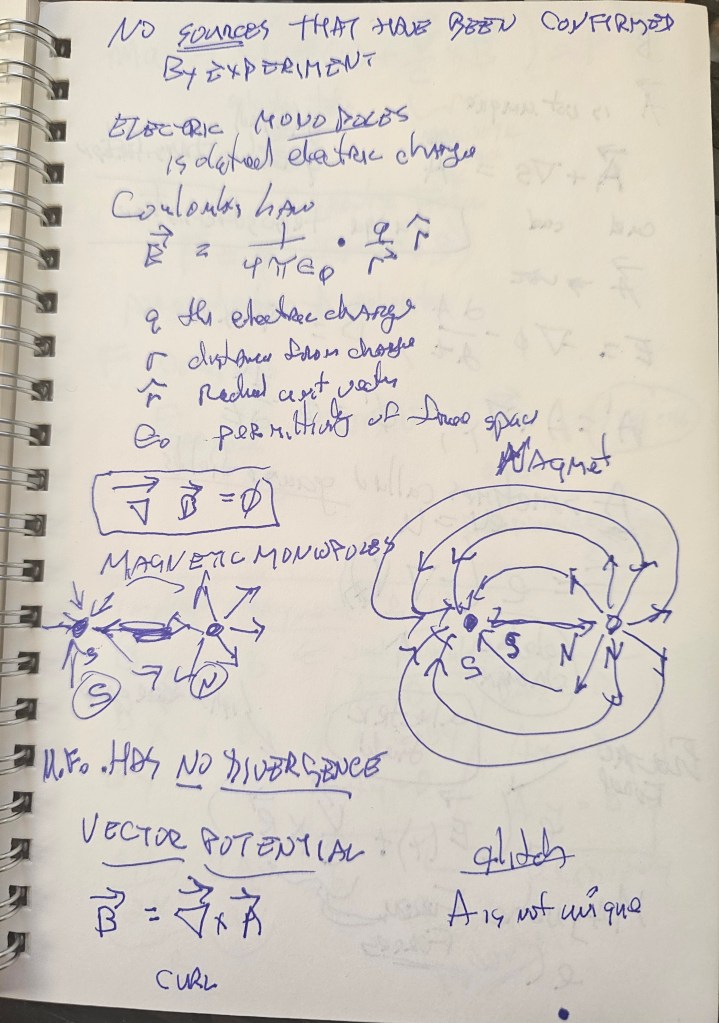 NO SOURCES THAT HAVE BEEN CONFIRMED
BY EXPERIMENT
ELECTRIC MONOPOLES
isolated electric charge
Coulombs Law
E⃗ = 1/4π∈₀ · q/r⃗ r̂
q the electric charge
r distance from charge
r̂ Radial unit vector
∈₀ permittivity of free space
MAgnet
∇⃗ B⃗ = ∅
MAGNETIC MONOPOLES
S
S
N
S
S
N
N
M.F. HAS NO DIVERGENCE
VECTOR POTENTIAL
glitch
B⃗ = ∇⃗ x A⃗
A is not unique
CURL